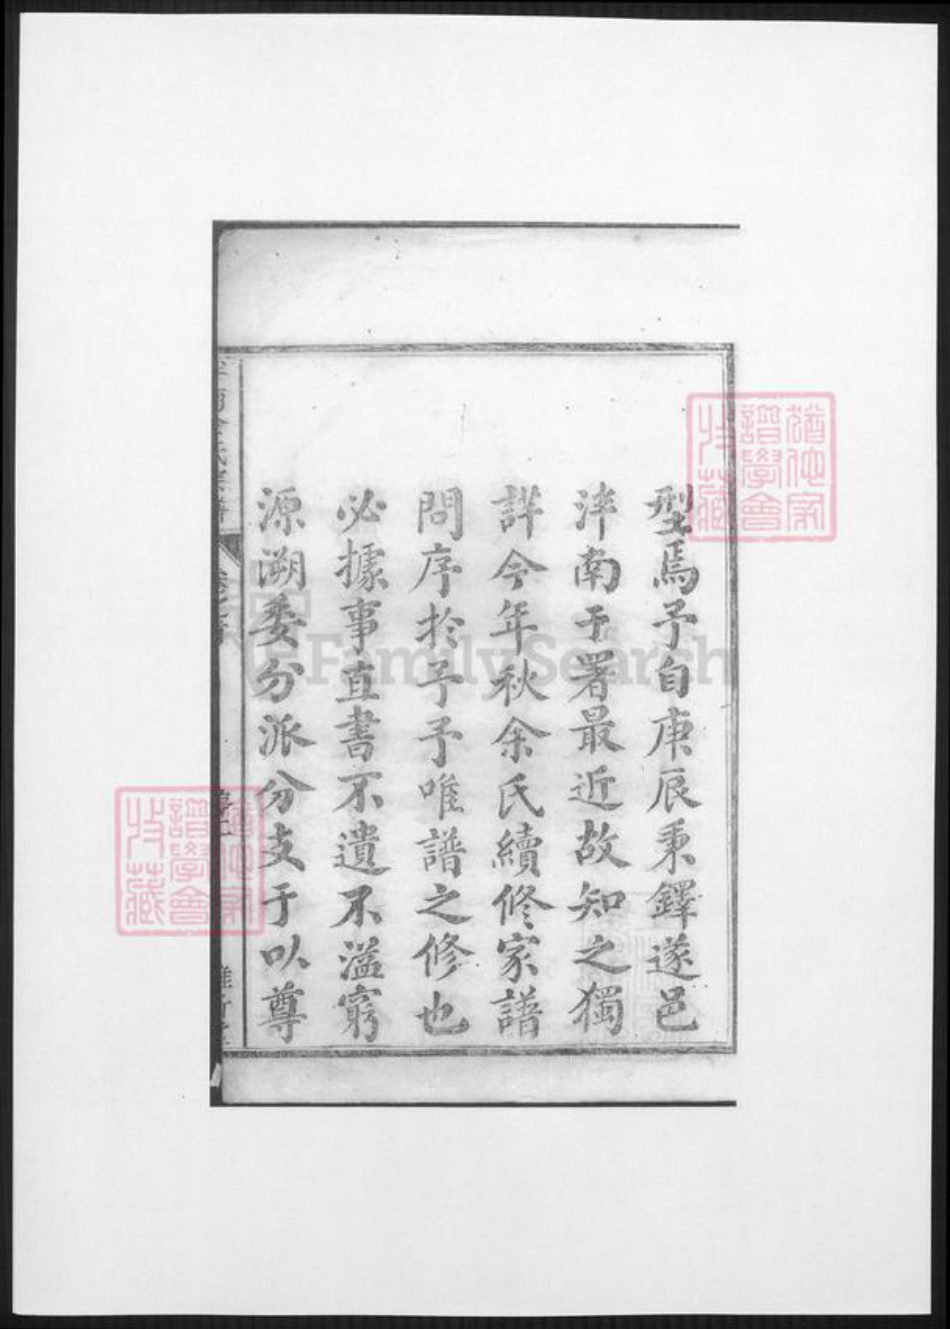 型焉予自庚辰秉鐸遂邑
泮南于署最近故知之獨
詳今年秋余氏續修家譜
問序於予予唯譜之修也
必據事直書不遺不濫窮
源溯委分派分支于以尊
南余氏宗譜
卷之首
譜學會
收藏
FamilySearch
譜學會
收藏